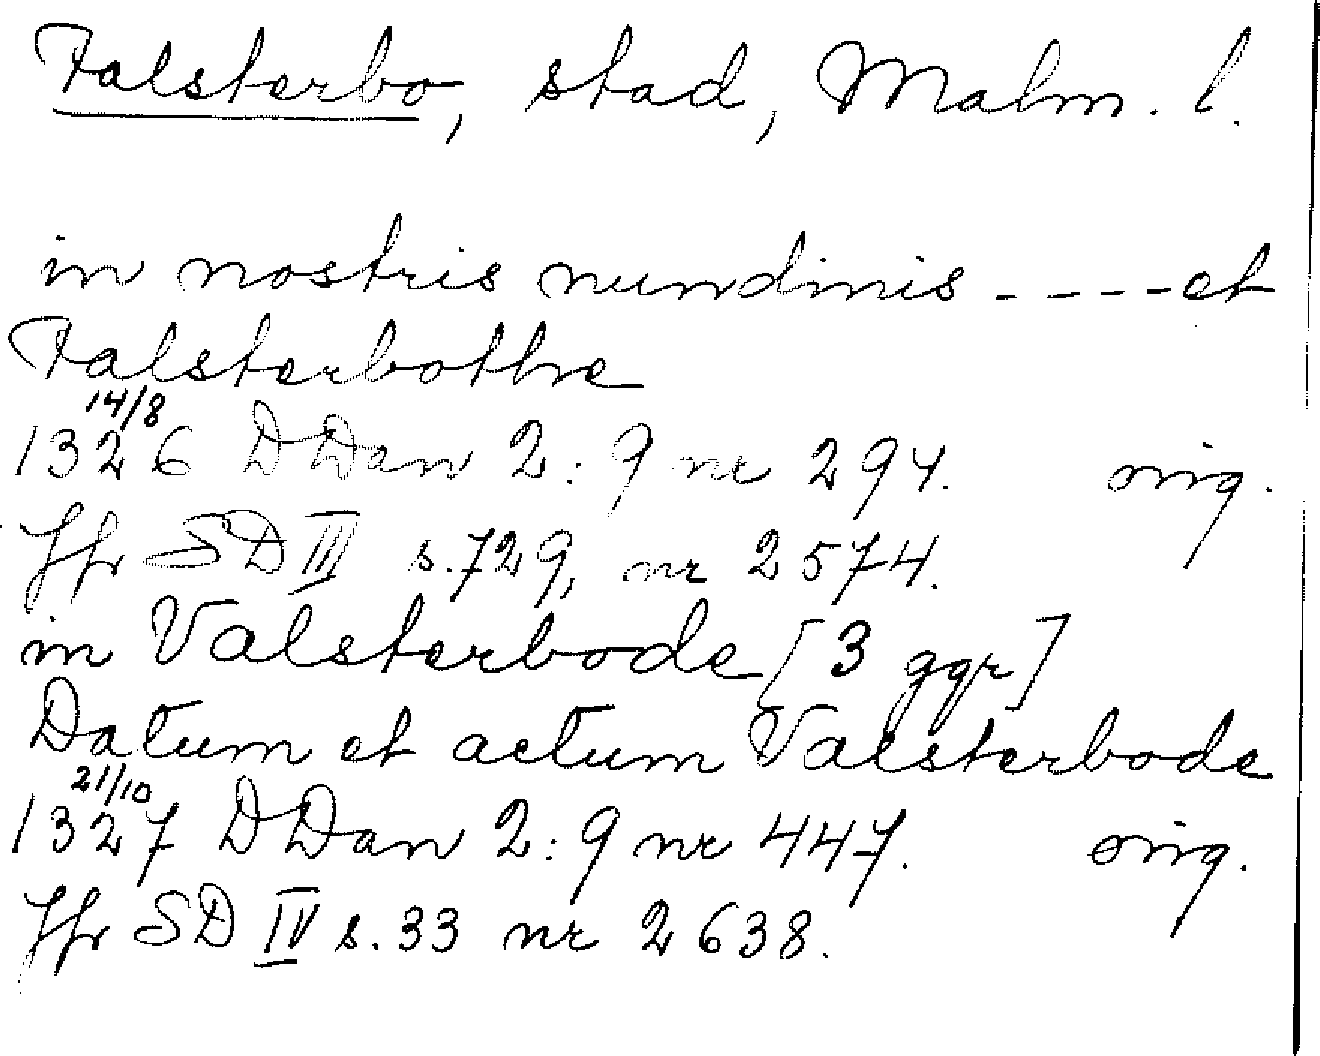 Falsterbo, stad, Malm. l.
in nostris nundinis ---- et
Falsterbothe
14/8
1326 DDan 2:9 nr 294. orig.
Jfr SD III s. 729, nr 2574.
in Valsterbode [3 ggr]
Datum et actum Valsterbode
21/10
1327 DDan 2:9 nr 447. orig.
Jfr SD IV s. 33 nr 2638.